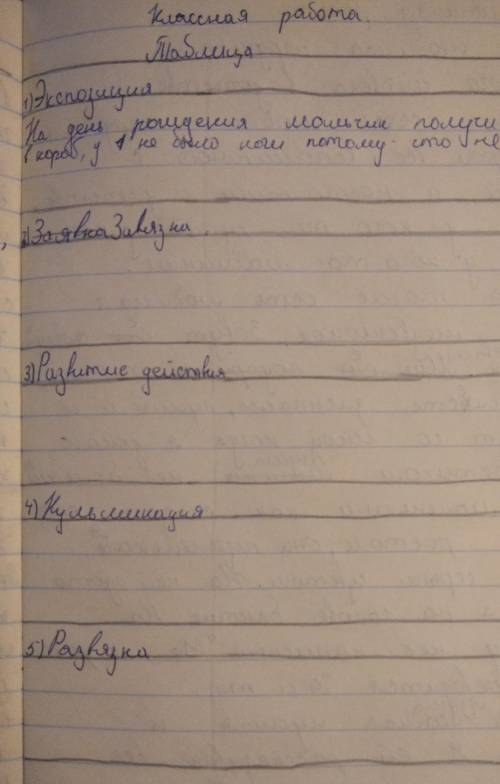 Классная работа.
Таблица
1) Экспозиция
На день рождения мальчик получи
короб, у 1 не было ноги потому что не
2) Заявка Завязка.
3) Развитие действия
4) Кульминация
5) Развязка